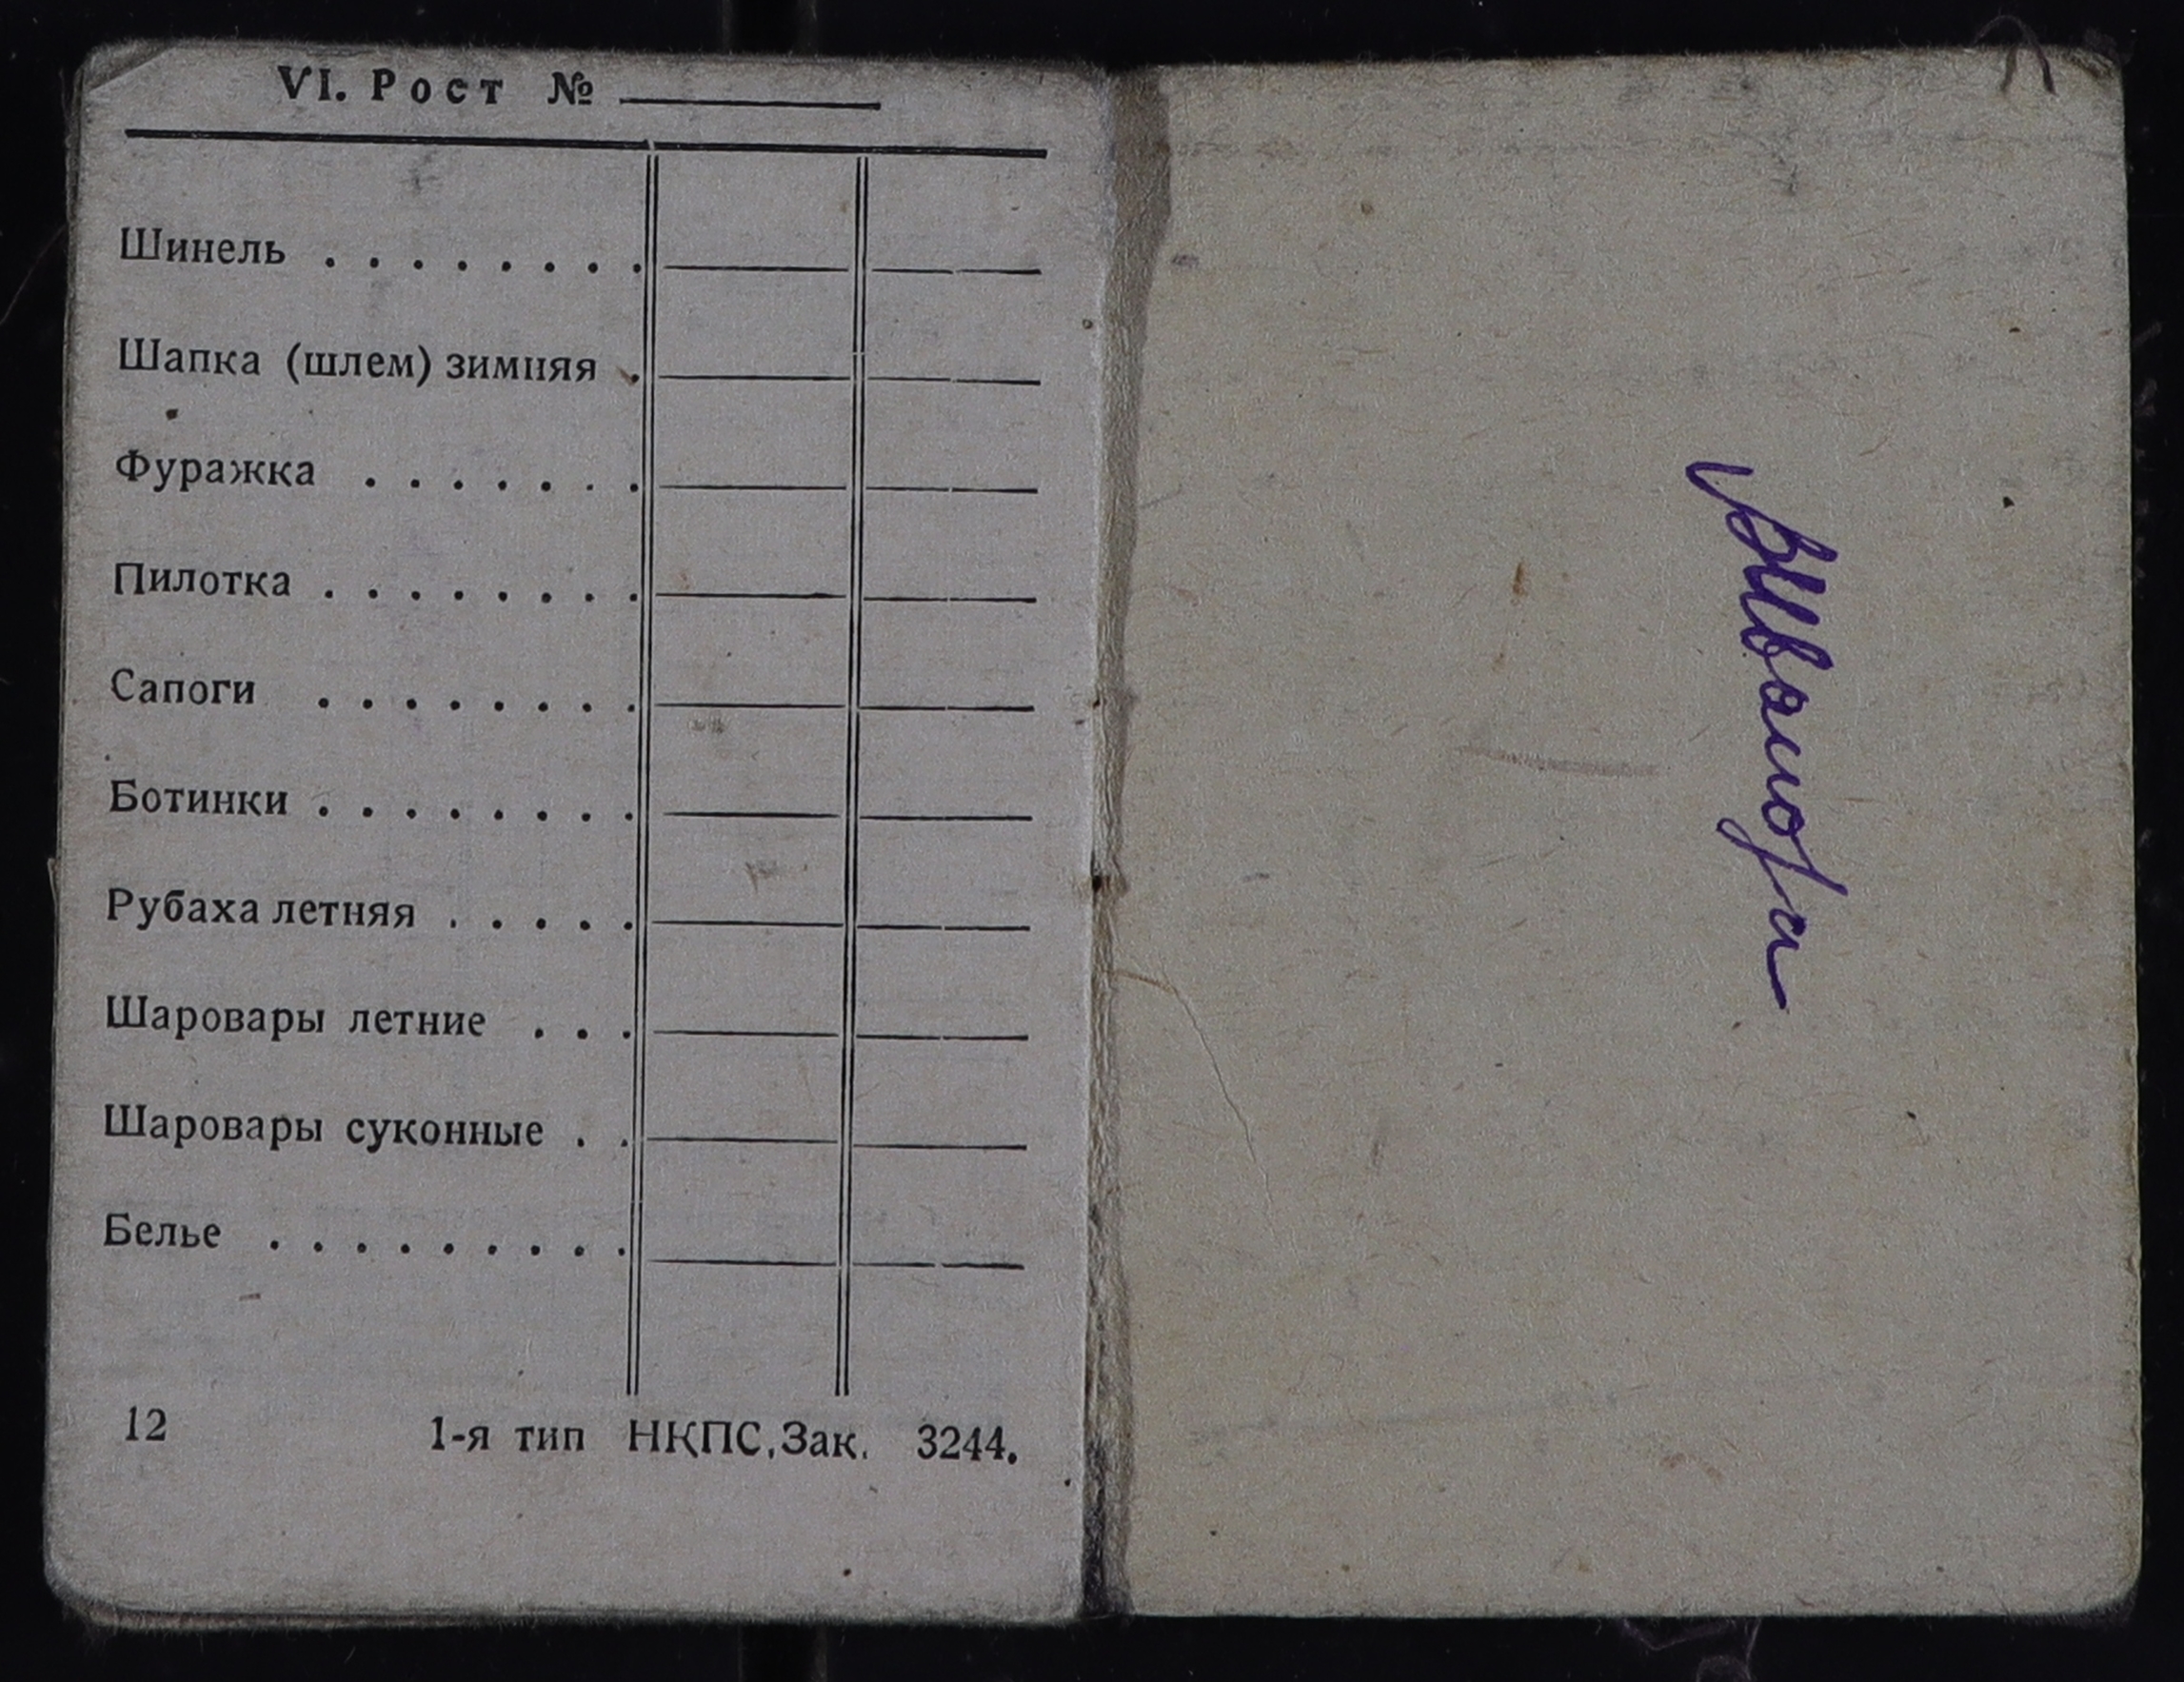 VI. Рост № ____
Шинель . . . . . . . .
Шапка (шлем) зимняя .
Фуражка . . . . . . .
Пилотка . . . . . . . .
Сапоги . . . . . . . .
Ботинки . . . . . . . .
Рубаха летняя . . . . .
Шаровары летние . . .
Шаровары суконные . .
Белье . . . . . . . . .
12 1-я тип НКПС, Зак. 3244.